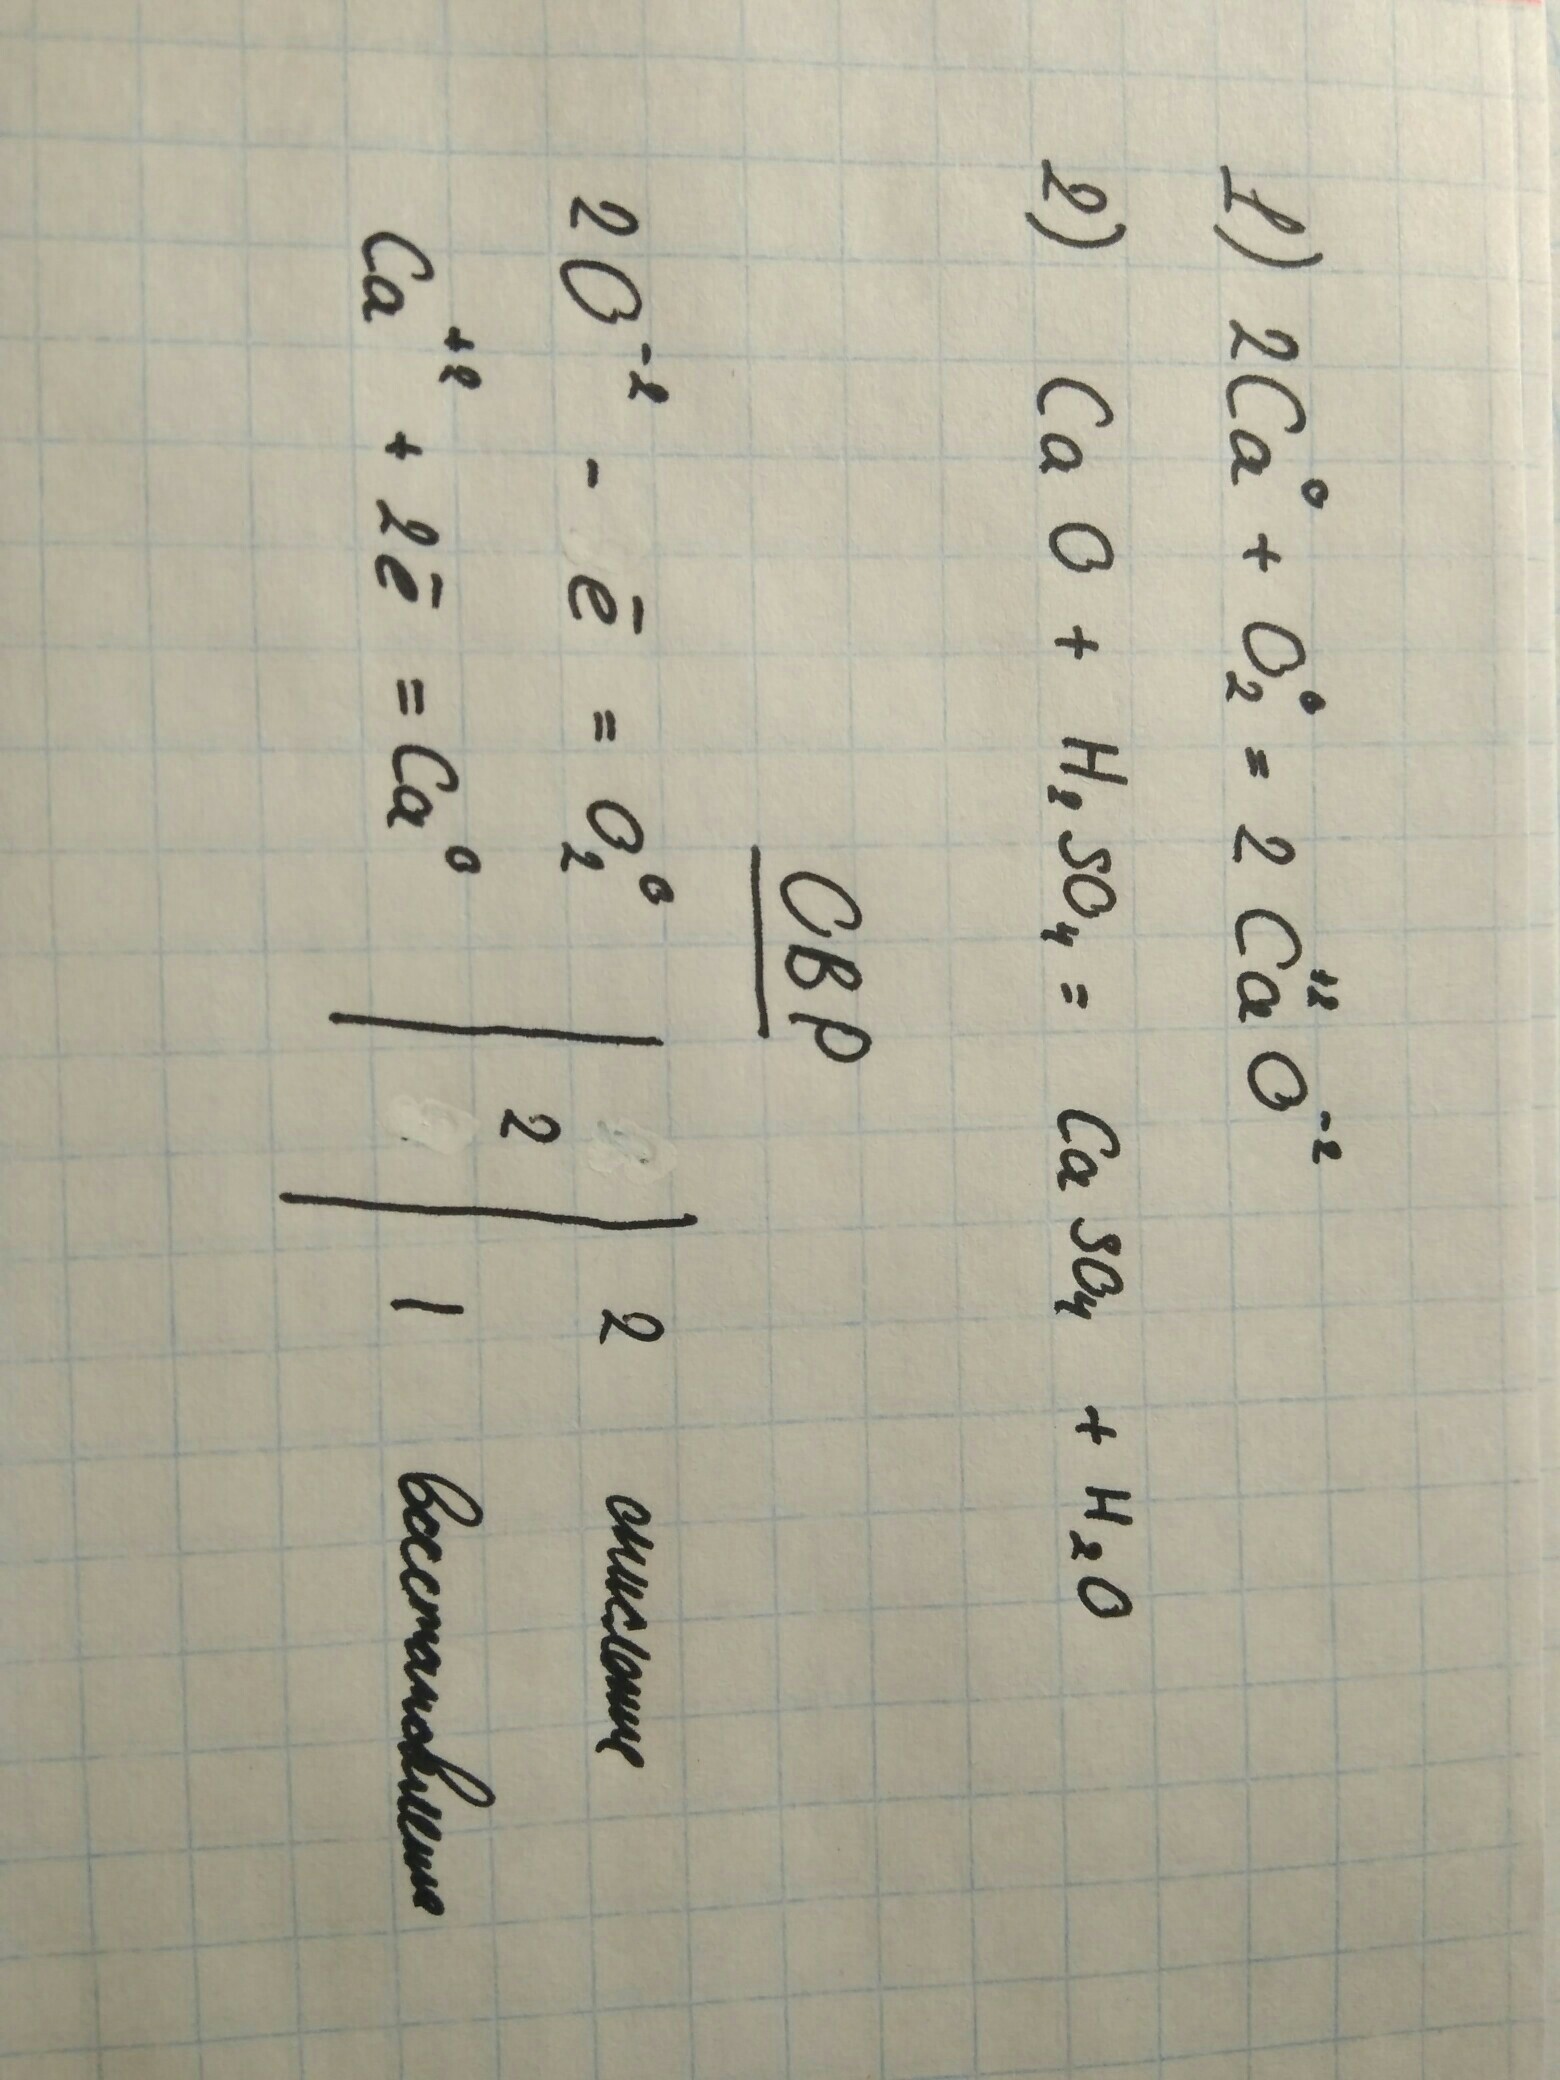 1) 2Ca⁰ + O₂⁰ = 2Ca⁺²O⁻²
2) CaO + H₂SO₄ = CaSO₄ + H₂O
ОВР
2O⁻² - ē = O₂⁰ | | 2 окисление
2
Ca⁺² + 2ē = Ca⁰ | | 1 восстановление